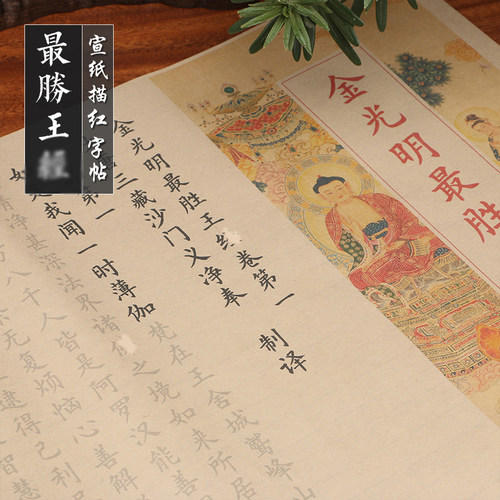 最勝王
宣纸描红字帖
金光明最胜
金光明最胜王经卷第一
三藏沙门义净奉 制译
第一
是我闻一时薄伽梵在王舍城鹫峰山
清净甚深法界诸之境如来所居
八千人皆是阿罗汉能善
无复烦恼心善解
逮得己利
智慧